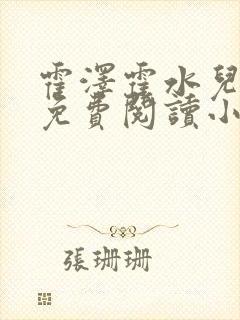 霍澤霍水兒
免費閱讀小
張珊珊